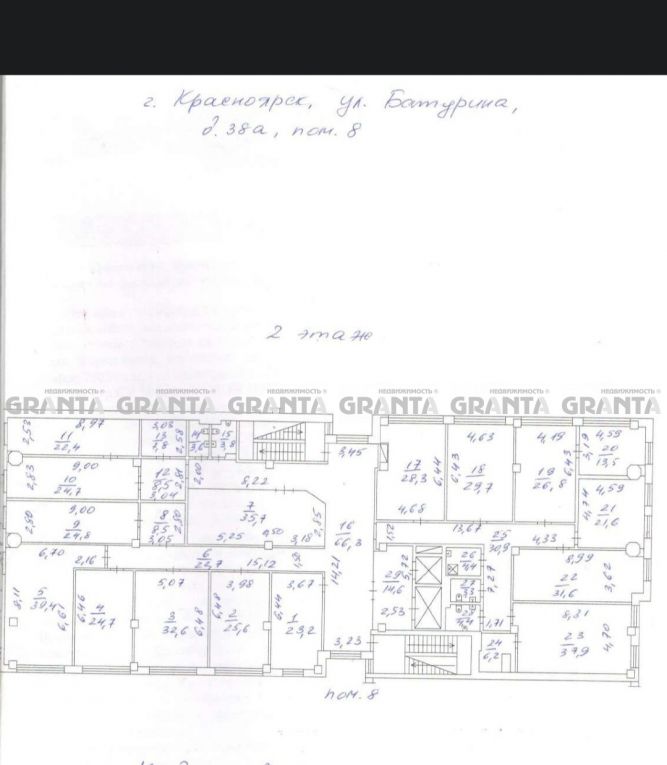 г. Красноярск, ул. Батурина,
д. 38а, пом. 8
2 этаж
НЕДВИЖИМОСТЬ НЕДВИЖИМОСТЬ НЕДВИЖИМОСТЬ НЕДВИЖИМОСТЬ НЕДВИЖИМОСТЬ НЕДВИЖИМОСТЬ
GRANTA GRANTA GRANTA GRANTA GRANTA GRANTA
2,53 11 22,4 8,97 3,08 13 7,8 2,53 14 3,6 15 3,8
3,45
2,83 10 24,7 9,00 12 8,5 3,04 2,81 2,00 8,22
17 28,3 6,44 4,68
4,63 6,43 18 29,7
4,19 19 26,8 6,43
4,59 3,19 20 13,5
2,80 9 24,8 9,00 8 8,5 3,05 2,80
7 35,7 5,25 0,50 3,18 2,85
16 66,3 14,21 3,23
4,59 4,74 21 21,6
1,52 13,67 25 30,9 4,33 7,27 1,71
6,70 2,16 6 22,7 15,12 1,50
8,11 5 39,4 6,61
6,46 4 24,7
5,07 3 32,6 6,48
3,98 6,48 2 25,6
3,67 6,44 1 23,2
29 14,6 5,72 2,53
26 4,4
27 3,3
28 4,4
8,99 22 31,6 3,62
8,31 23 37,9 4,70
24 6,2
пом. 8